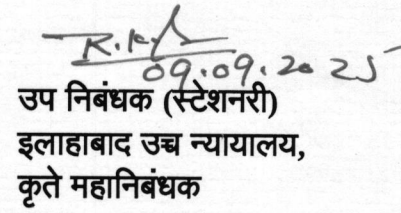 R.K
09.09.2025
उप निबंधक (स्टेशनरी)
इलाहाबाद उच्च न्यायालय,
कृते महानिबंधक